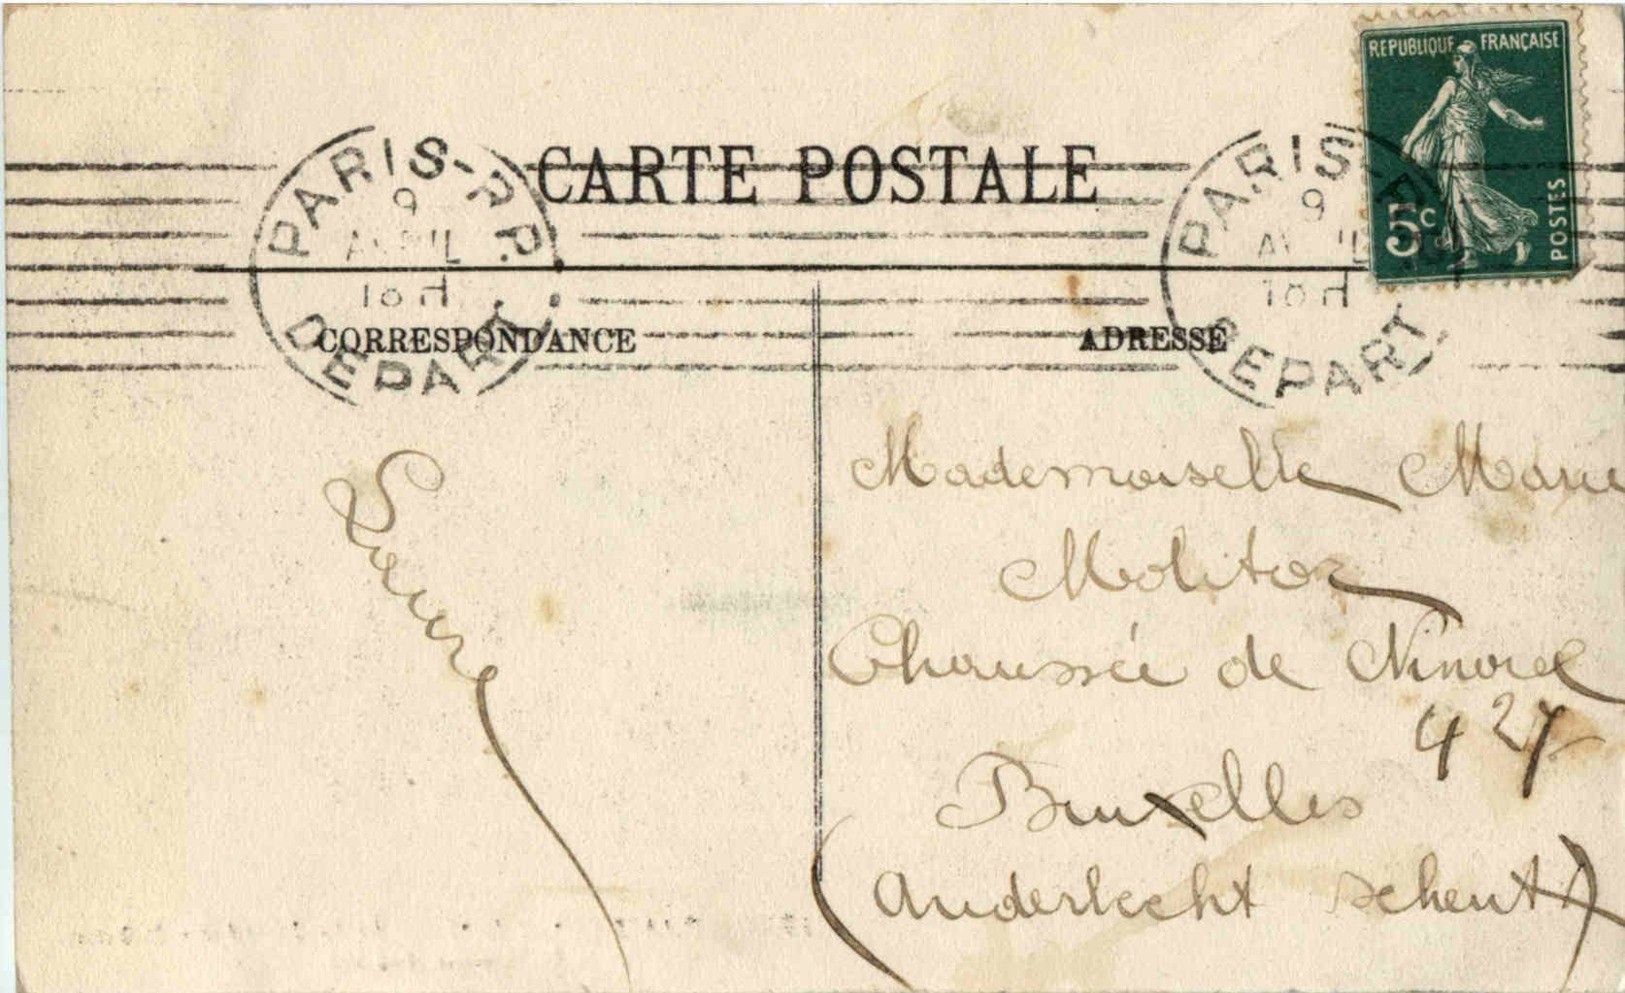 REPUBLIQUE FRANÇAISE
5c
POSTES
CARTE POSTALE
PARIS-R.P.
9
AVRIL
18 H
DEPART
PARIS
9
18 H
DEPART
CORRESPONDANCE
ADRESSE
Laure
Mademoiselle Marie
Molitor
Chaussée de Ninove
427
Bruxelles
(Anderlecht Scheut)